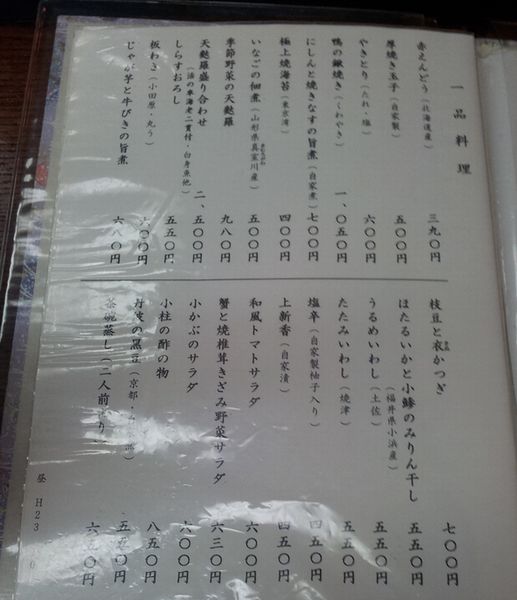 一品料理
赤えんどう（北海道産） 三九〇円
厚焼き玉子（自家製） 五〇〇円
やきとり（たれ・塩） 六〇〇円
鴨の鍬焼き（くわやき） 一、〇五〇円
にしんと焼きなすの旨煮（自家煮） 七〇〇円
極上焼海苔（東京湾） 四〇〇円
いなごの佃煮（山形県真室川産） 五〇〇円
季節野菜の天麩羅 九八〇円
天麩羅盛り合わせ 二、五〇〇円
（活の車海老二貫付・白身魚他）
しらすおろし 五五〇円
板わさ（小田原・丸う） 六〇〇円
じゃが芋と牛びきの旨煮 六八〇円
枝豆と衣かつぎ 七〇〇円
ほたるいかと小鯵のみりん干し 五五〇円
（福井県小浜産）
うるめいわし（土佐） 五五〇円
たたみいわし（焼津） 五五〇円
塩辛（自家製柚子入り） 四五〇円
上新香（自家漬） 四五〇円
和風トマトサラダ 六〇〇円
蟹と焼椎茸きざみ野菜サラダ 六三〇円
小かぶのサラダ 六〇〇円
小柱の酢の物 八五〇円
丹波の黒豆（京都・ 五五〇円
茶碗蒸し（二人前より） 六五〇円
昼 H23